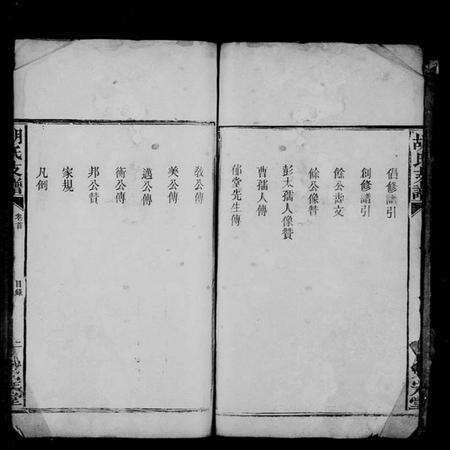 倡修譜引
創修譜引
餘公壽文
餘公像贊
彭太孺人像贊
曹孺人傳
佈堂先生傳
教公傳
美公傳
進公傳
術公傳
邦公贊
家規
凡例
胡氏支譜
卷首
目錄
二